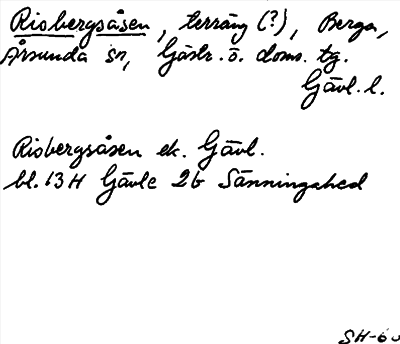 Risbergsåsen, terräng (?), Berga,
Årsunda sn, Gästr. ö. doms. tg.
Gävl. l.
Risbergsåsen ek. Gävl.
bl. 13 H Gävle 2b Sänningahed
SH-60